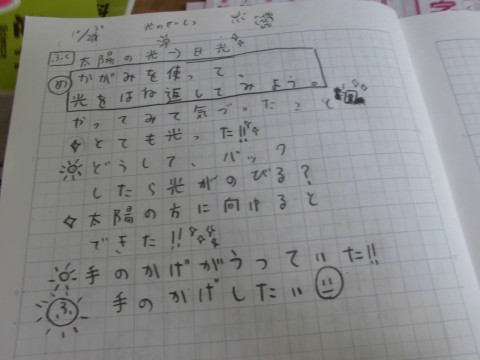 太陽の光→日光
め かがみを使って、
光をはね返してみよう。
かってみて気づいたこと
とても光った!!
どうして、バック
したら光がのびる?
太陽の方に向けると
できた!!
手のかげがうつっていた!!
手のかげしたい